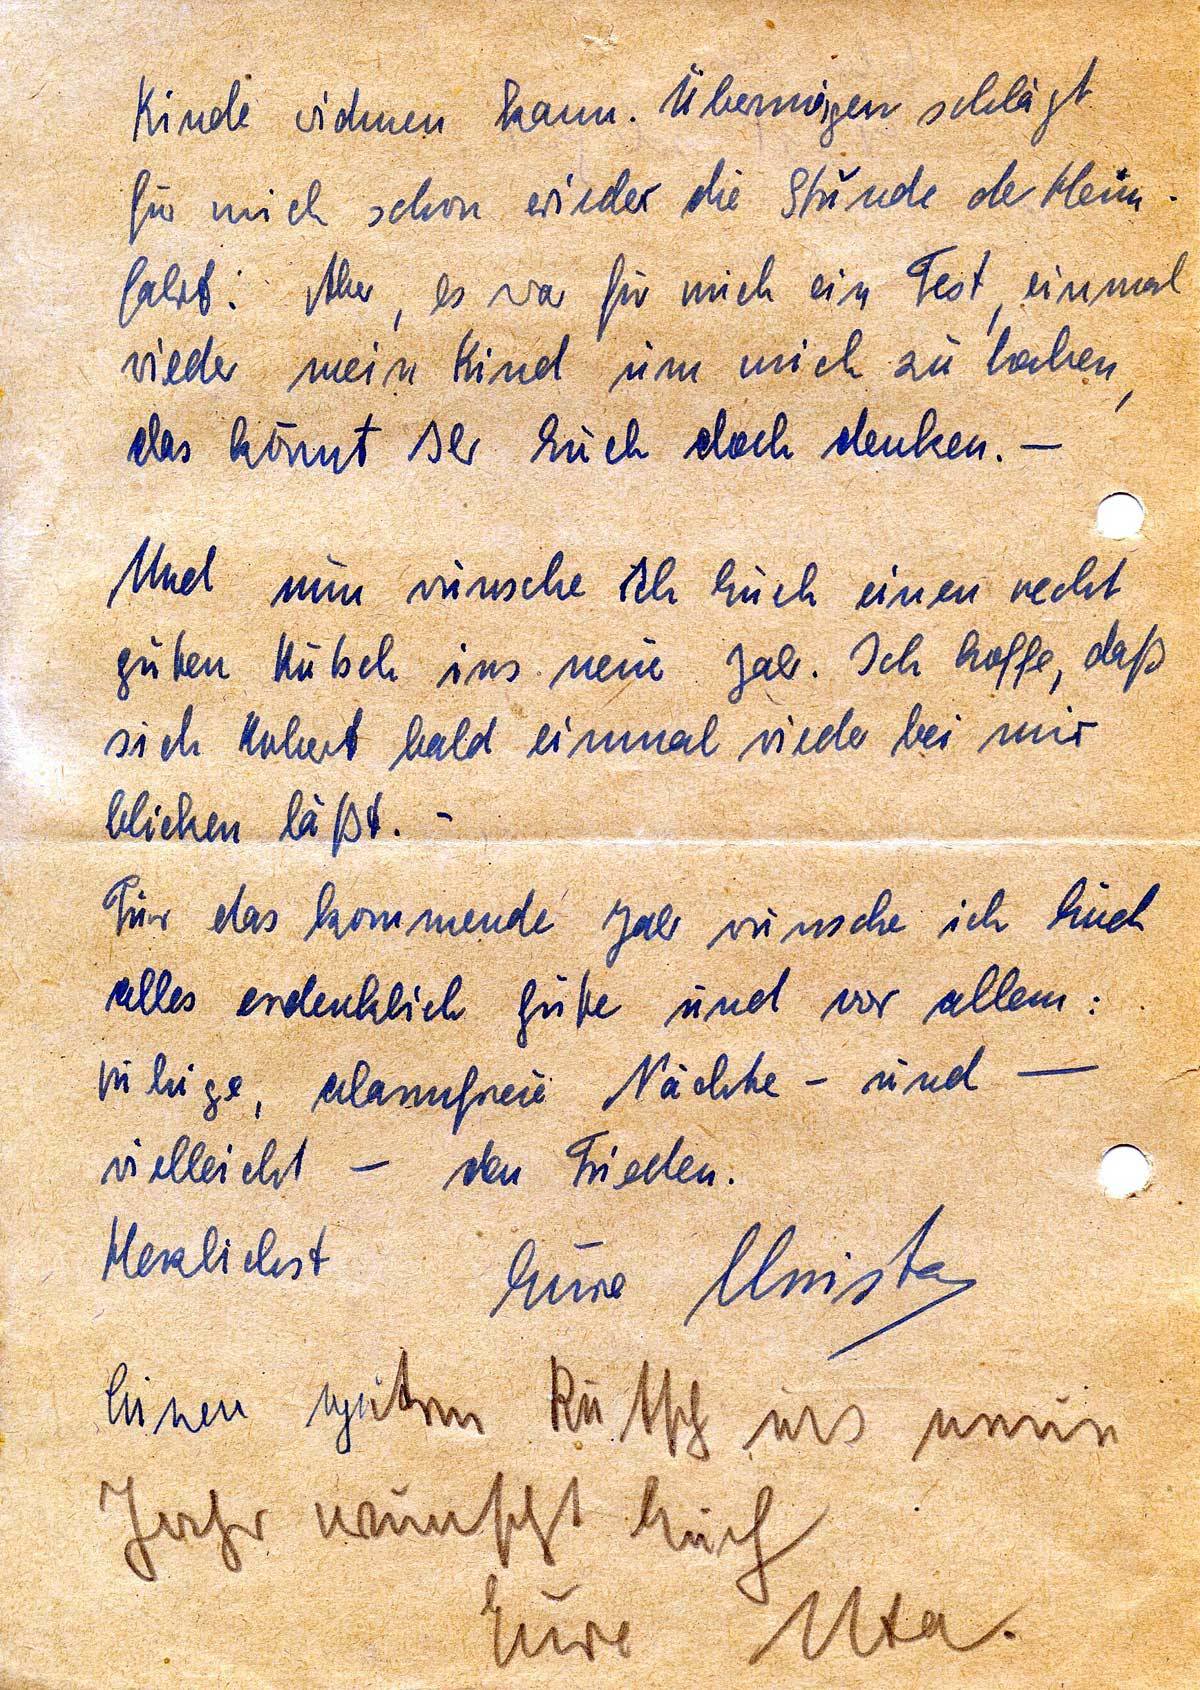 Kinde widmen kann. Übermorgen schlägt
für mich schon wieder die Stunde der Heim-
fahrt. Aber, es war für mich ein Fest, einmal
wieder mein Kind um mich zu haben,
das könnt Ihr Euch doch denken. —
Und nun wünsche ich Euch einen recht
guten Rutsch ins neue Jahr. Ich hoffe, daß
sich Robert bald einmal wieder bei mir
blicken läßt. -
Für das kommende Jahr wünsche ich Euch
alles erdenklich Gute und vor allem:
ruhige, alarmfreie Nächte - und —
vielleicht — den Frieden.
Herzlichst Eure Christa
Einen guten Rutsch ins neue
Jahr wünscht Euch
Eure Uta.